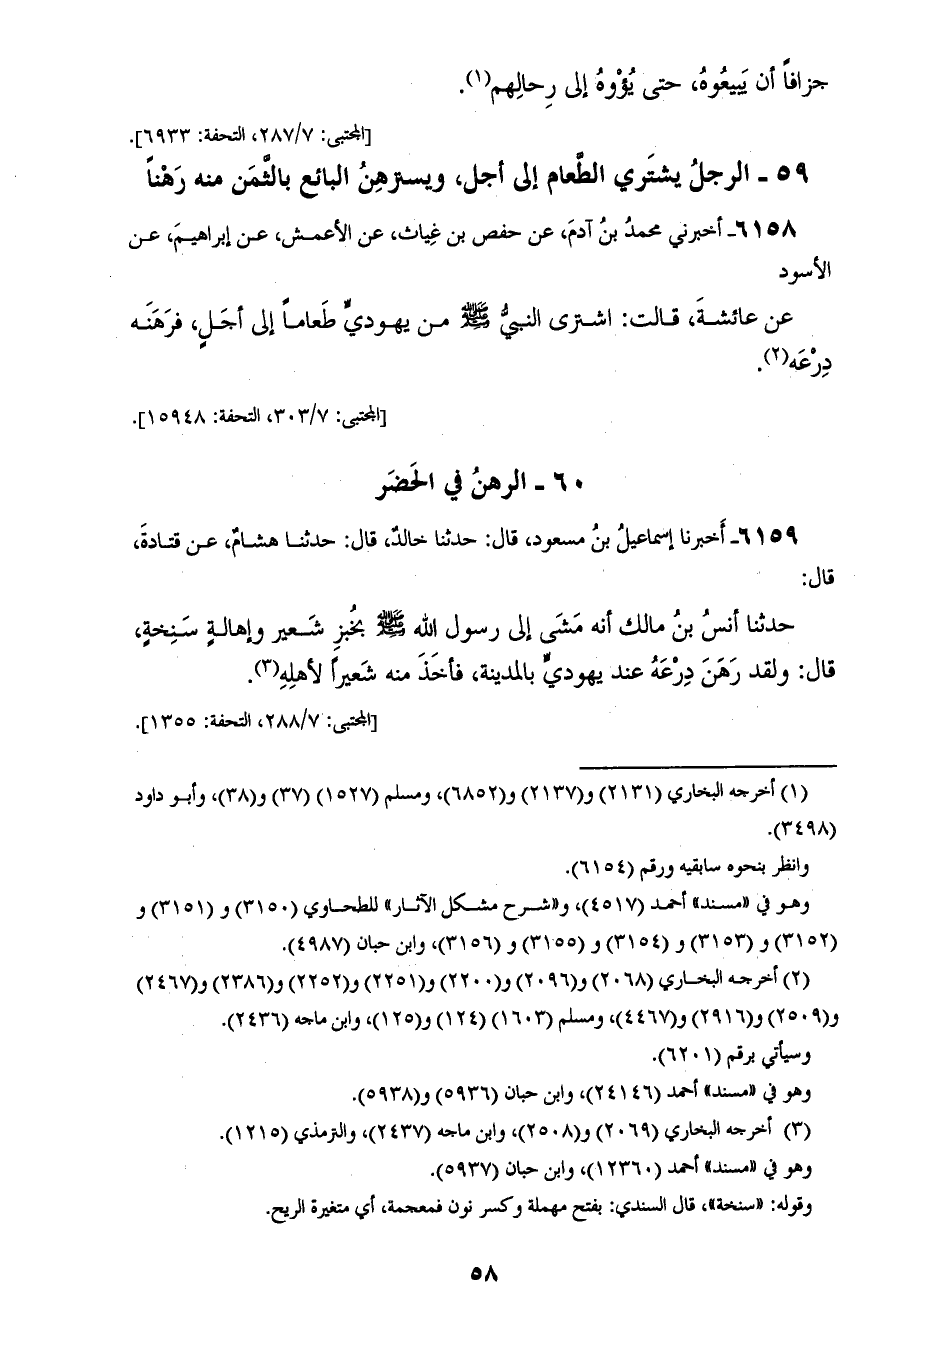 جزافاً أن يَبيعُوهُ، حتى يُؤْوهُ إلى رِحالِهم(١).
[المجتبى: ٢٨٧/٧، التحفة: ٦٩٣٣].
٥٩ - الرجلُ يشتَري الطَّعام إلى أجل، ويسترهِنُ البائع بالثَّمَن منه رَهْناً
٦١٥٨ـ أخبرني محمدُ بنُ آدمَ، عن حفص بن غِياث، عن الأعمش، عن إبراهيمَ، عن
الأسود
عن عائشةَ، قالت: اشترى النبيُّ ﷺ من يهوديٍّ طَعاماً إلى أجَلٍ، فرَهَنَه
دِرْعَه(٢).
[المجتبى: ٣٠٣/٧، التحفة: ١٥٩٤٨].
٦٠ - الرهنُ في الحَضَر
٦١٥٩ـ أَخبرنا إسماعيلُ بنُ مسعود، قال: حدثنا خالدٌ، قال: حدثنا هشامٌ، عن قتادةَ،
قال:
حدثنا أنسُ بنُ مالك أنه مَشَى إلى رسول الله ﷺ بخُبزِ شَعير وإهالةٍ سَنِخةٍ،
قال: ولقد رَهَنَ دِرْعَهُ عند يهوديٍّ بالمدينة، فأخَذَ منه شَعيراً لأهلِهِ(٣).
[المجتبى: ٢٨٨/٧، التحفة: ١٣٥٥].
(١) أخرجه البخاري (٢١٣١) و(٢١٣٧) و(٦٨٥٢)، ومسلم (١٥٢٧) (٣٧) و(٣٨)، وأبو داود
(٣٤٩٨).
وانظر بنحوه سابقيه ورقم (٦١٥٤).
وهو في «مسند» أحمد (٤٥١٧)، و«شرح مشكل الآثار» للطحاوي (٣١٥٠) و (٣١٥١) و
(٣١٥٢) و (٣١٥٣) و (٣١٥٤) و (٣١٥٥) و (٣١٥٦)، وابن حبان (٤٩٨٧).
(٢) أخرجه البخاري (٢٠٦٨) و(٢٠٩٦) و(٢٢٠٠) و(٢٢٥١) و(٢٢٥٢) و(٢٣٨٦) و(٢٤٦٧)
و(٢٥٠٩) و(٢٩١٦) و(٤٤٦٧)، ومسلم (١٦٠٣) (١٢٤) و(١٢٥)، وابن ماجه (٢٤٣٦).
وسيأتي برقم (٦٢٠١).
وهو في «مسند» أحمد (٢٤١٤٦)، وابن حبان (٥٩٣٦) و(٥٩٣٨).
(٣) أخرجه البخاري (٢٠٦٩) و(٢٥٠٨)، وابن ماجه (٢٤٣٧)، والترمذي (١٢١٥).
وهو في «مسند» أحمد (١٢٣٦٠)، وابن حبان (٥٩٣٧).
وقوله: «سنخة»، قال السندي: بفتح مهملة وكسر نون فمعجمة، أي متغيرة الريح.
٥٨